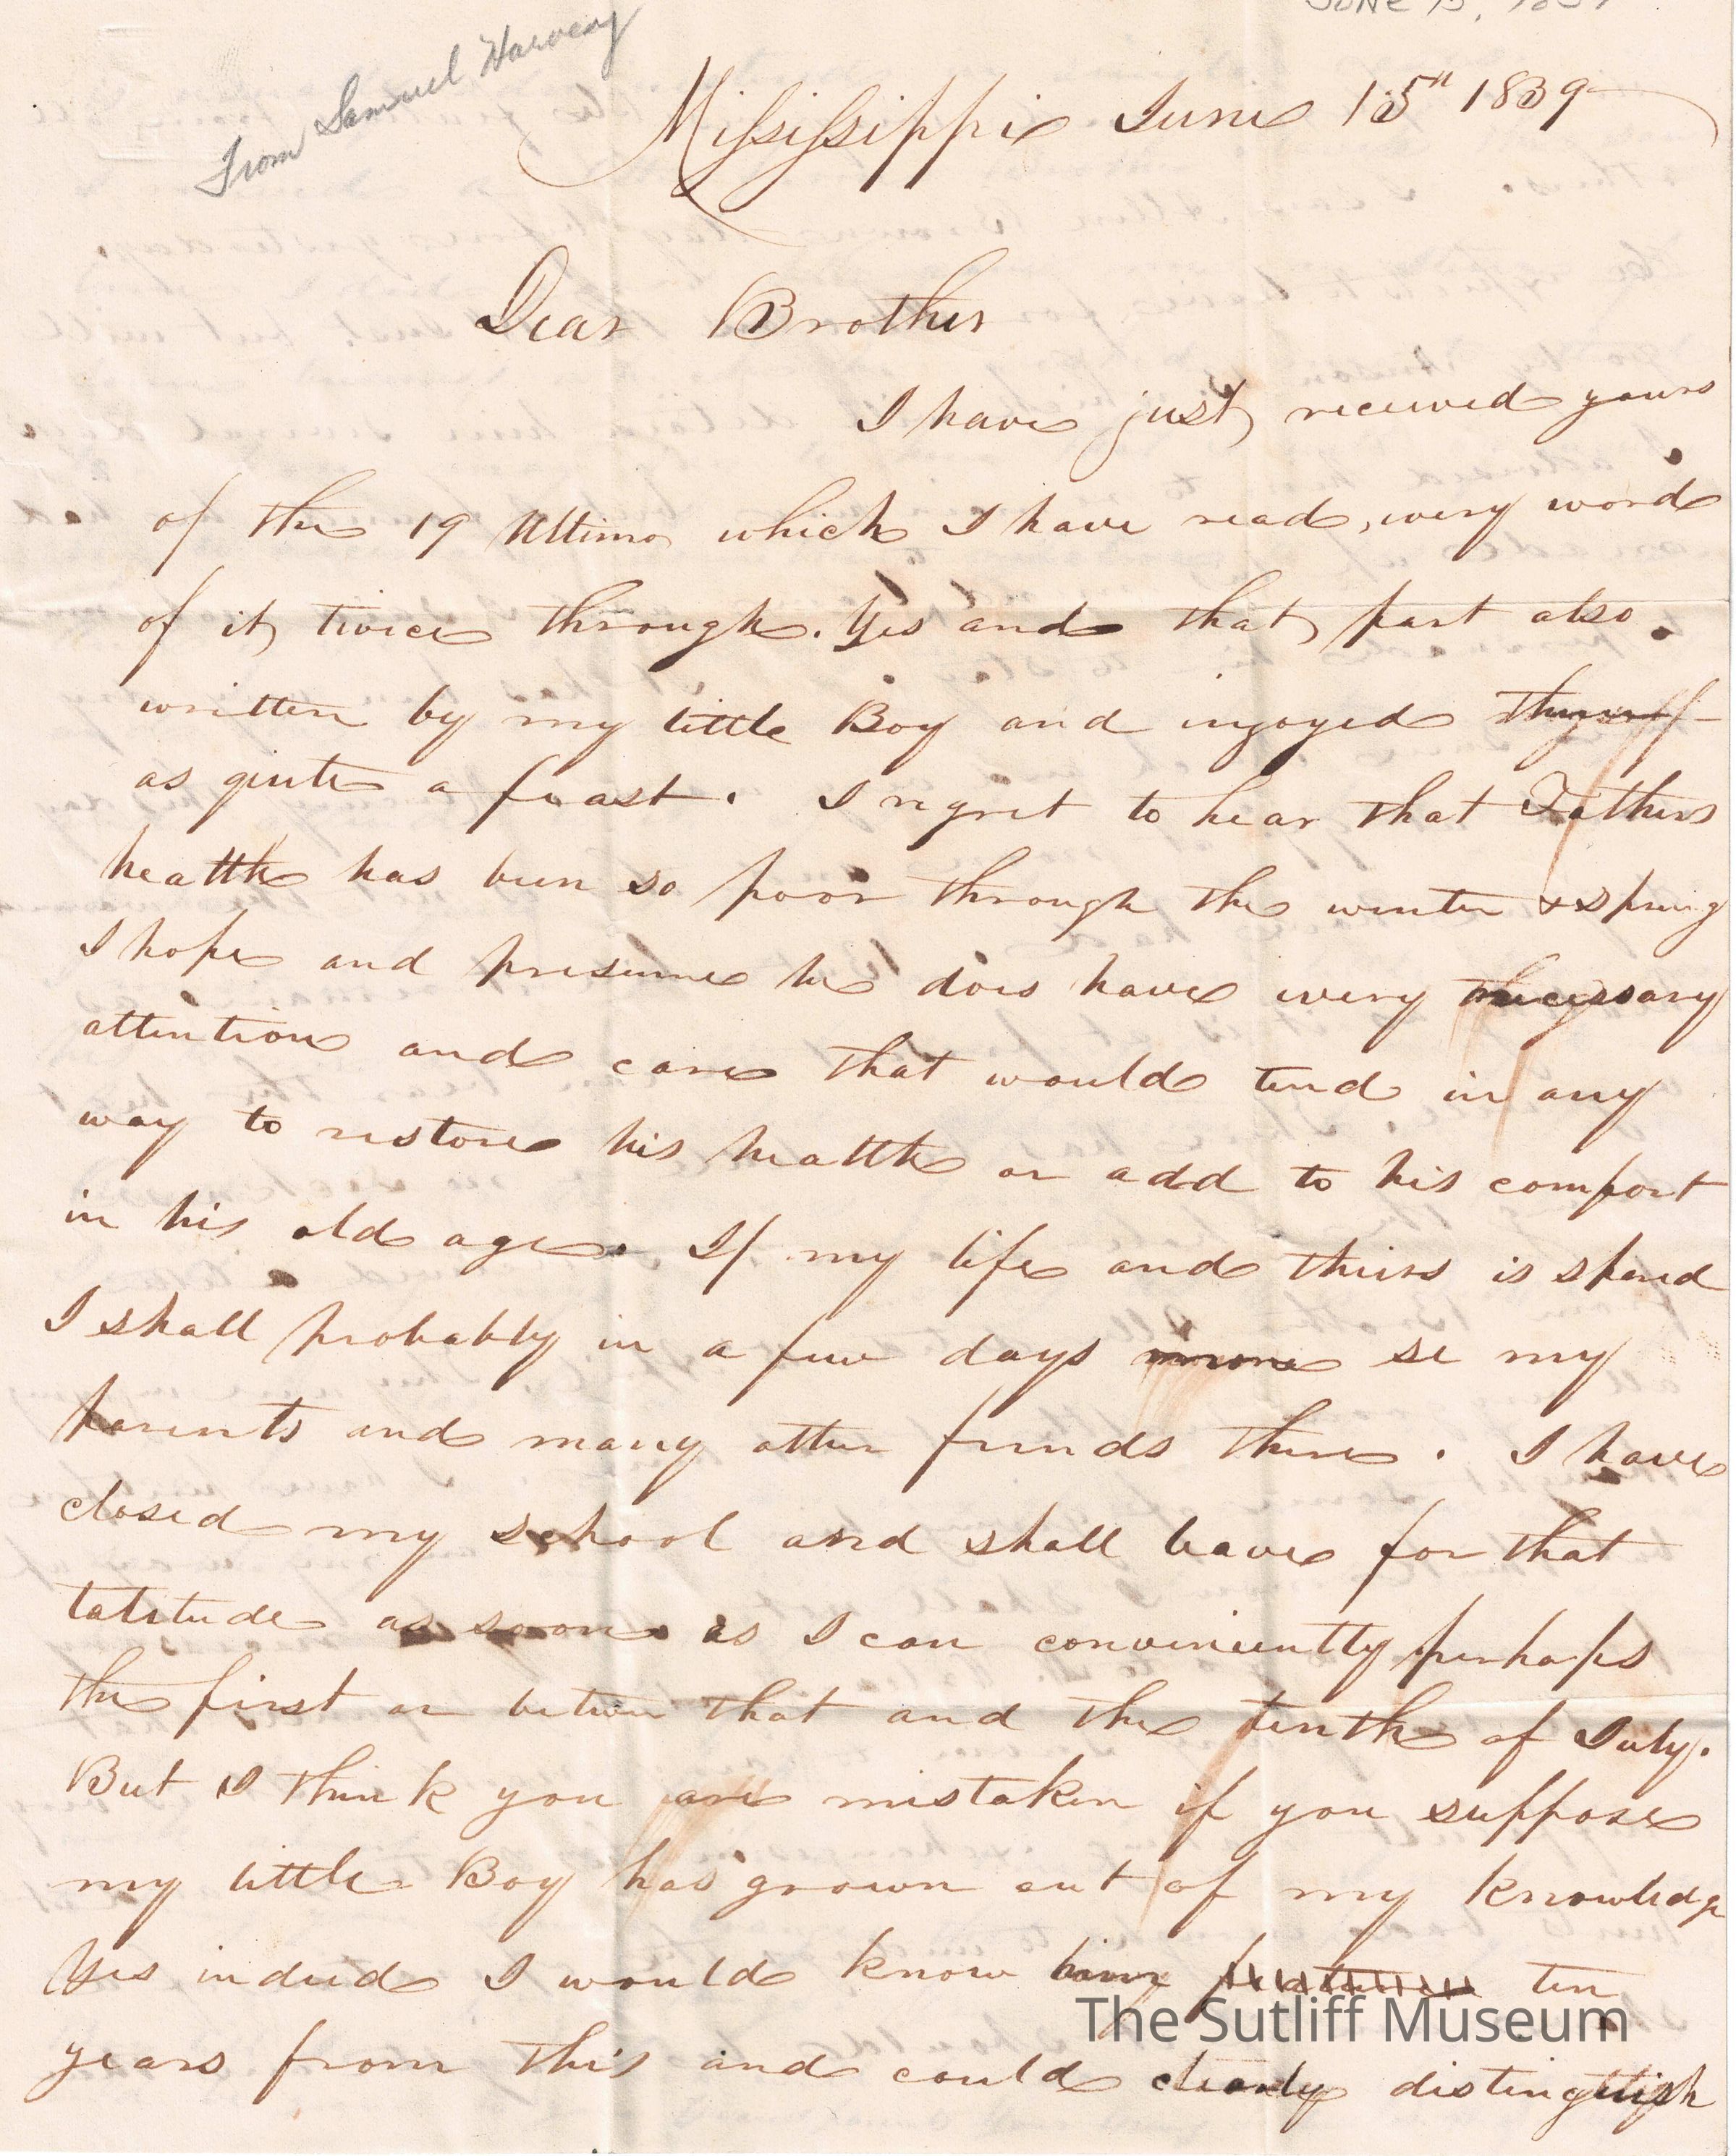 From Samuel Harvey
Mississippi June 15th 1839
Dear Brother
I have just received yours
of the 19 Ultimo which I have read, every word
of it twice through. Yes and that part also.
written by my little Boy and injoyed
as quite a feast. I regret to hear that Fathers
health has been so poor through the winter & spring
I hope and presume he does have every necessary
attention and care that would tend in any
way to restore his health or add to his comfort
in his old age. If my life and theirs is spared
I shall probably in a few days more se my
parents and many other friends there. I have
closed my school and shall leave for that
latitude as soon as I can conveniently perhaps
the first or betwen that and the tenth of July.
But I think you are mistaken if you suppose
my little Boy has grown out of my knowledge
Yes indeed I would know him ten
years from this and could clearly distinguish
The Sutliff Museum